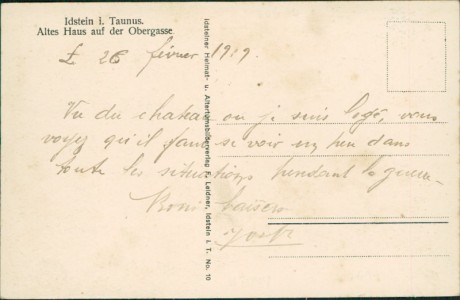 Idstein i. Taunus.
Altes Haus auf der Obergasse
Le 26 février 1919
Vu du chateau ou je suis logé, vous
voyez qu'il faut se voir un peu dans
toute les situations pendant la guerre
Bons baisers
Idsteiner Heimat- u. Altertumsbilderverlag F. Leidner, Idstein i. T. No. 10